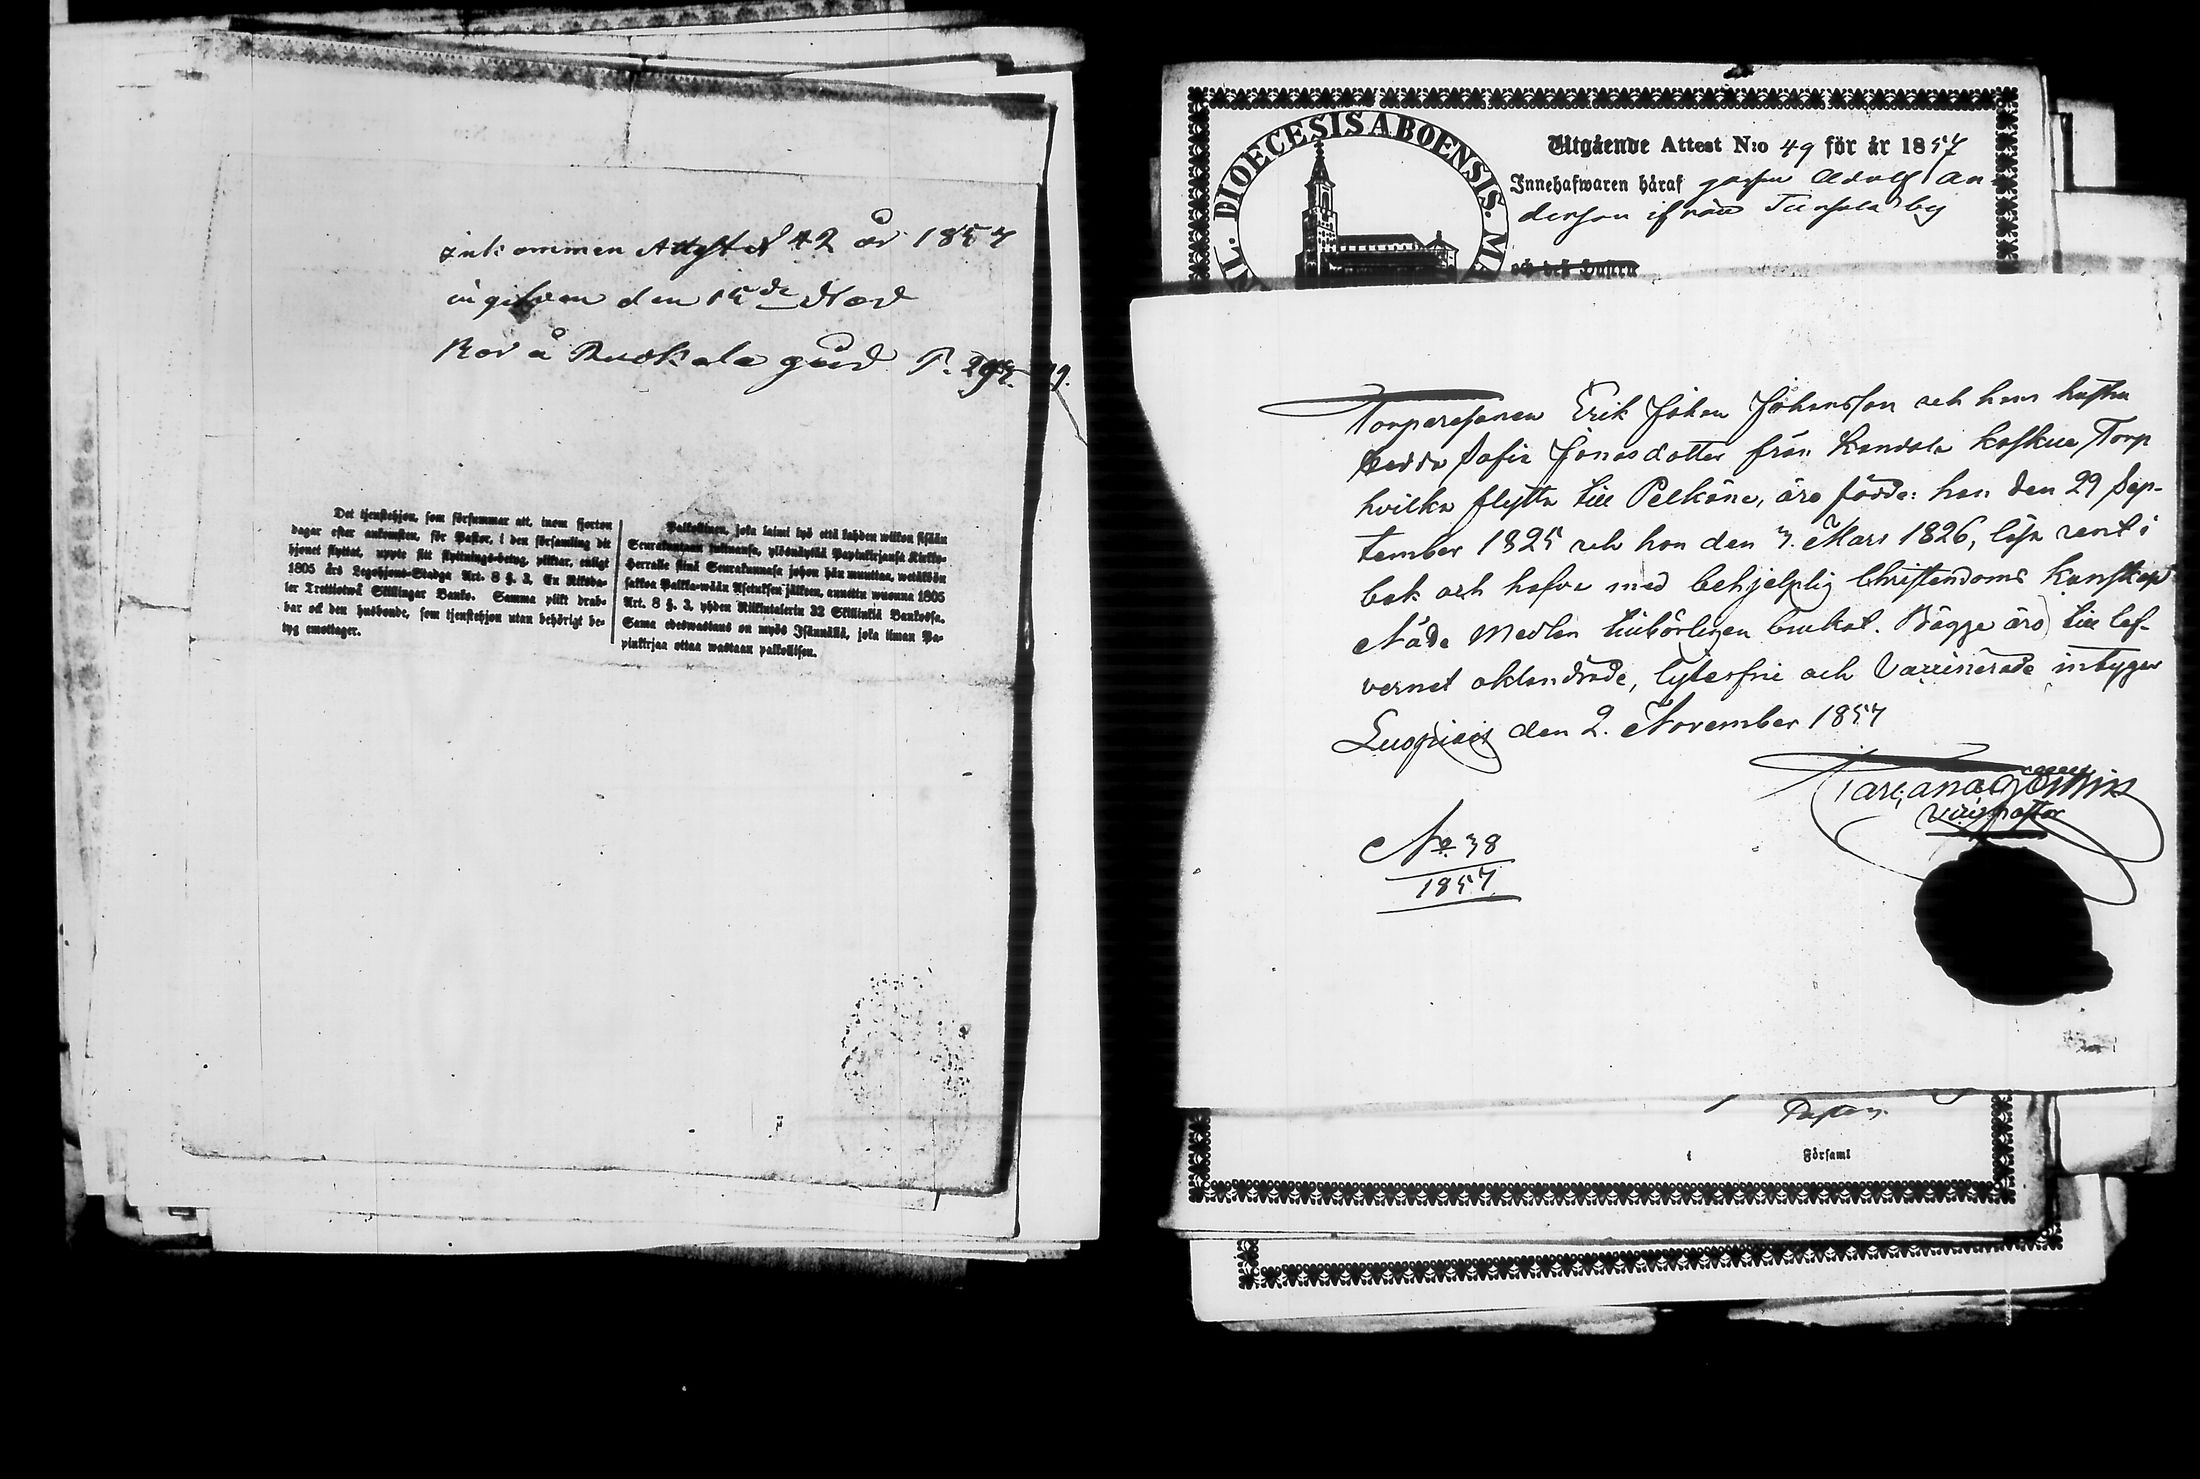 Inkommen Attest N 42 år 1857
ingifven den 15de Nov
Bor å Ruokola gård P. 295.
Det tjenstehjon, som försummar att, inom fjorton
dagar efter ankomsten, för Pastor, i den församling dit
hjonet flyttat, uppte sitt flyttnings-betyg, pliktar, enligt
1805 års Legohjons-Stadga Art. 8 §. 3, En Riksda-
ler Trettiotwå Skillingar Banko. Samma plikt drab-
bar ock den husbonde, som tjenstehjon utan behörigt be-
tyg emottager.
Palkollinen, joka laimi lyö että kahden wiikon sisään
Seurakuntaan tultuansa, ylösnäyttää Papinkirjansa Kirkko-
Herralle siinä Seurakunnasa johon hän muuttaa, wetäköön
sakkoa Palkka-wään Asetuksen jälkeen, annettu wuonna 1805
Art. 8 §. 3, yhden Riikintalerin 32 Skillinkiä Bankossa.
Sama edeswastaus on myös Isännällä, joka ilman Pa-
pinkirjaa ottaa wastaan palkollisen.
DIOECESIS ABOENSIS.
Utgående Attest N:o 49 för år 1857
Innehafwaren häraf gossen Adolf An-
dersson ifrån Tursala by
och deß Hustru
Torparesonen Erik Johan Johansson och hans hustru
Hedda Sofia Jonasdotter från Kandola Koskue Torp
hvilka flytta till Pelkäne, äro födde: han den 29 Sep-
tember 1825 och hon den 3. Mars 1826, läsa rent i
bok och hafva med behjelplig Christendoms Kunskap
Nåde Medlen tillbörligen brukat. Bägge äro till lef-
vernet oklandrade, lytesfrie och Vaccinerade intygar
Luopiois den 2. November 1857
Vice pastor
No. 38
1857
Pastor
i Församl